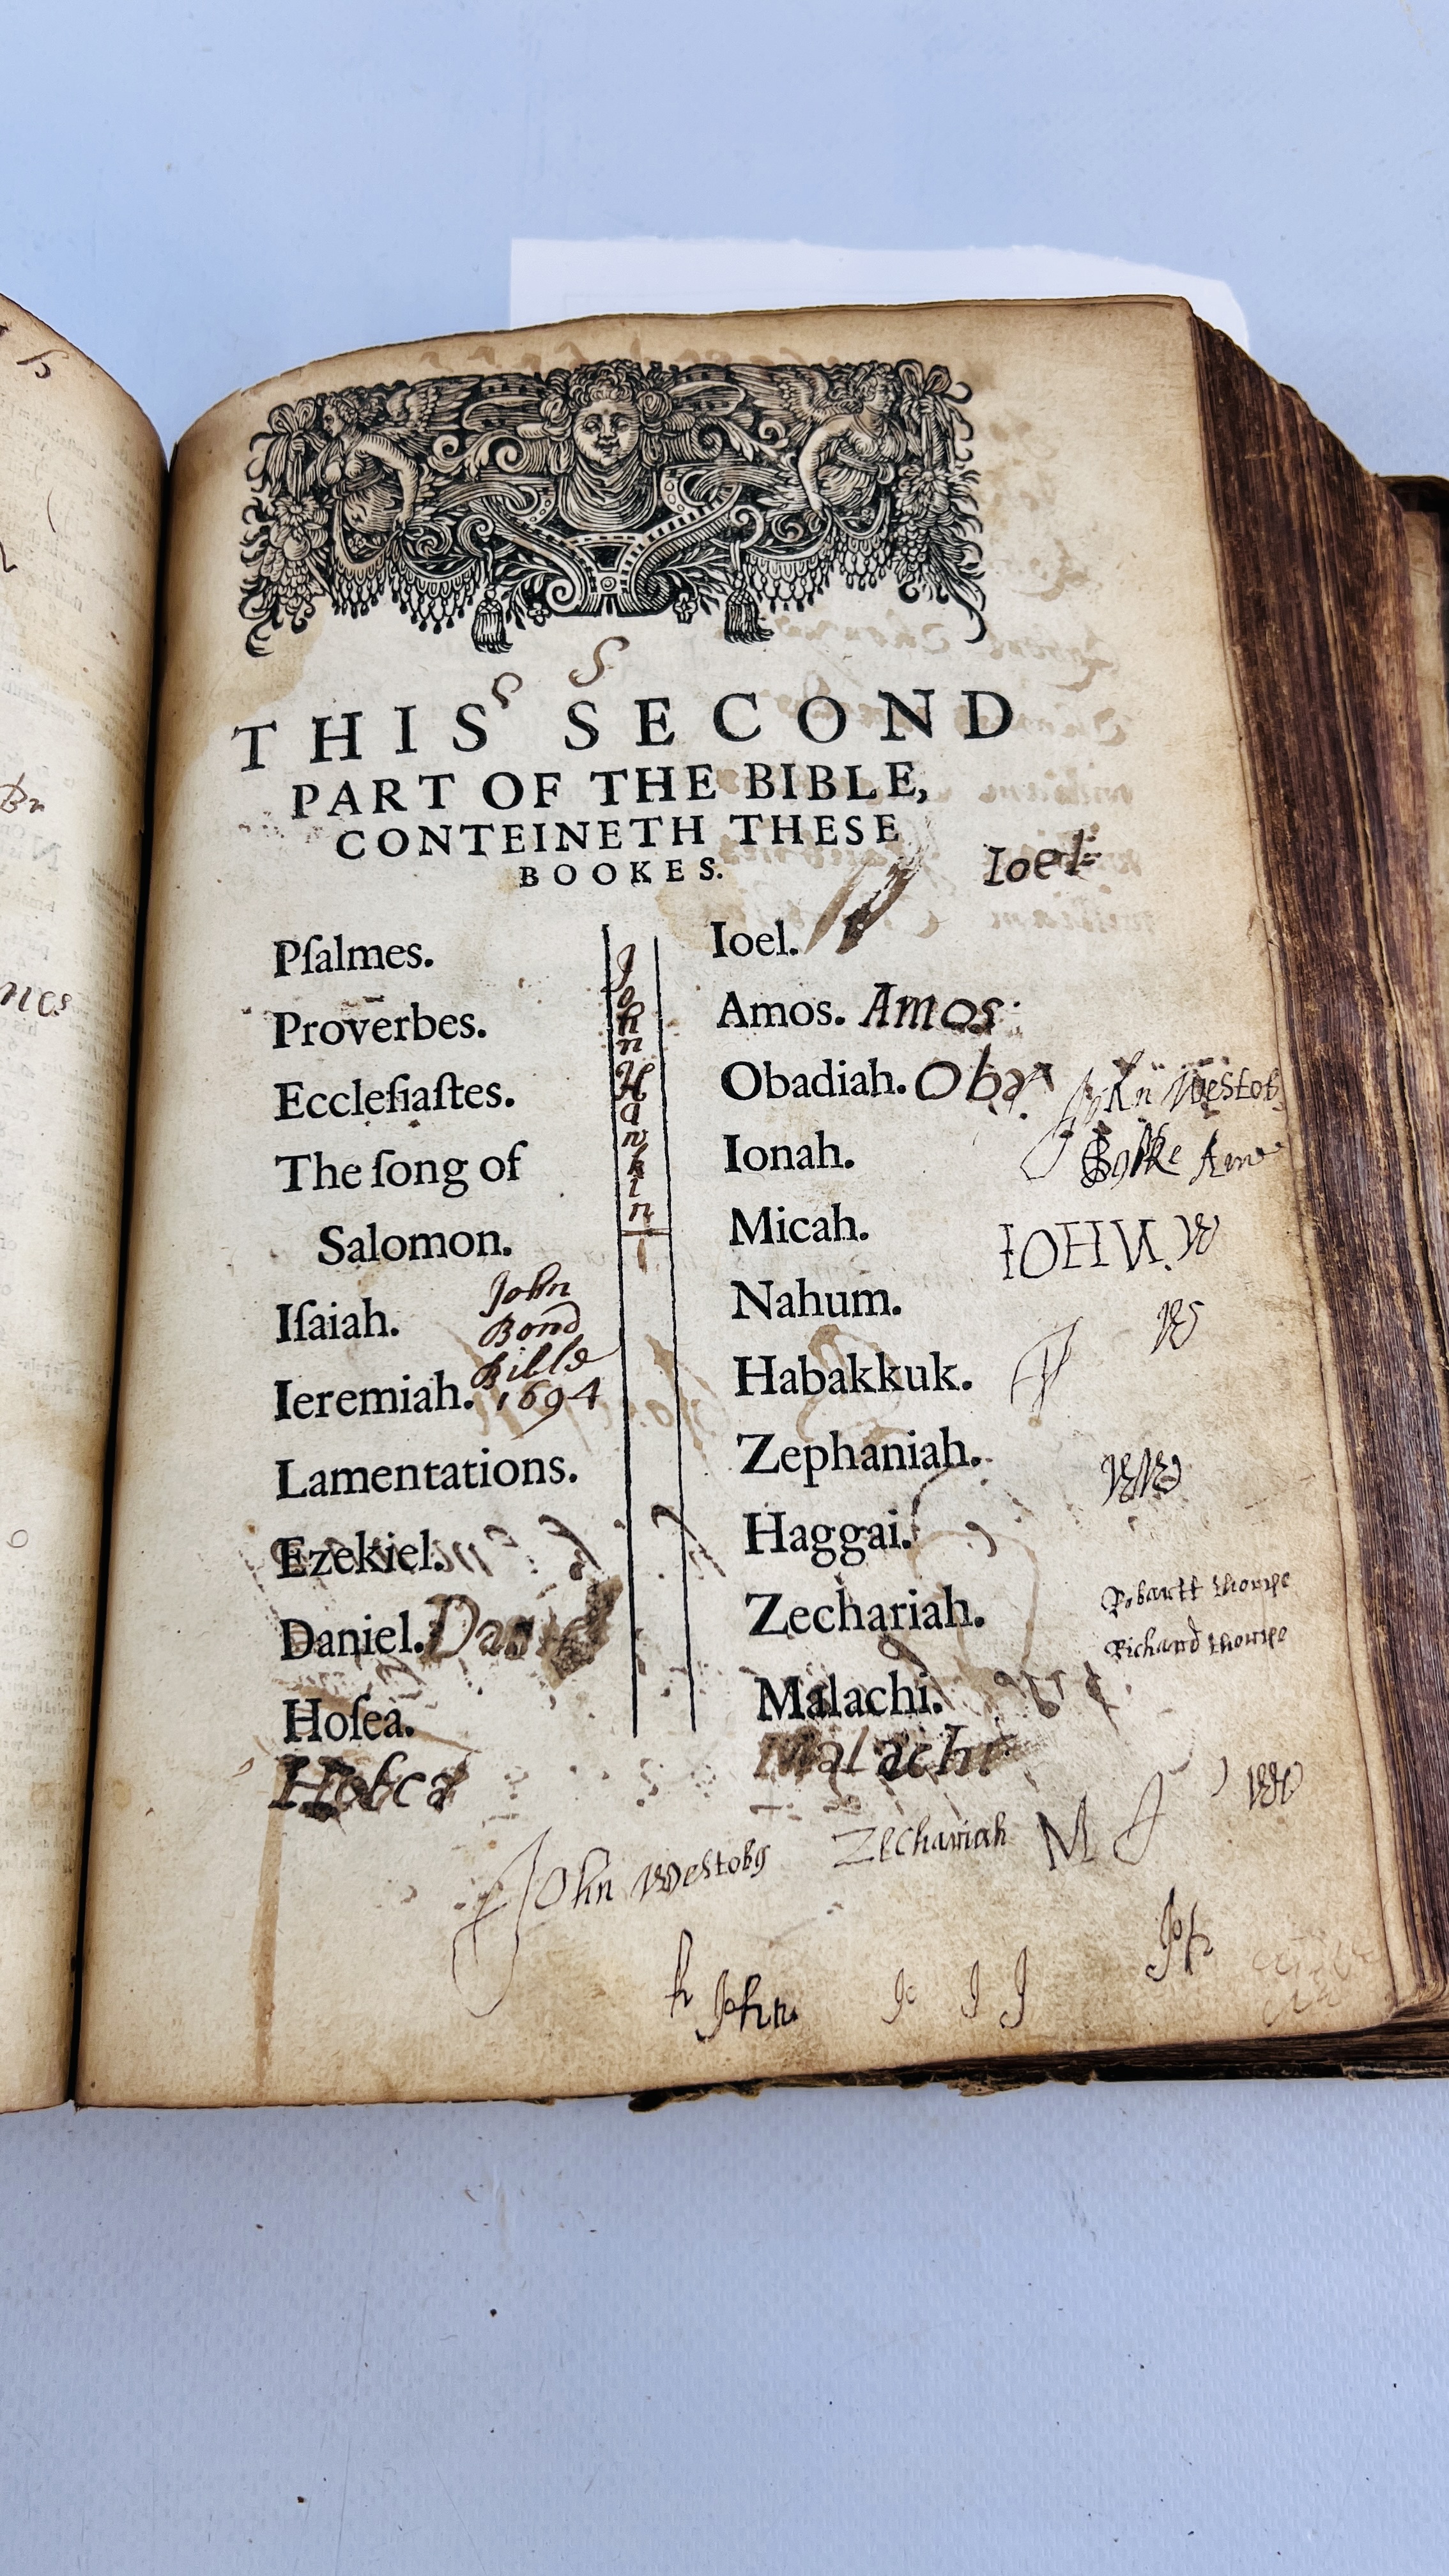 THIS SECOND
PART OF THE BIBLE,
CONTEINETH THESE
BOOKES.
Ioel
Pſalmes.
Proverbes.
Eccleſiaſtes.
The ſong of
Salomon.
Iſaiah.
Ieremiah.
Lamentations.
Ezekiel.
Daniel. Daniel
Hoſea.
Hosea
John
Bond
Bible
1694
John Hawkin
Ioel.
Amos. Amos
Obadiah. Oba
Ionah.
Micah.
Nahum.
Habakkuk.
Zephaniah.
Haggai.
Zechariah.
Malachi.
Malachi
John Westob
IOHN W
W
Robartt thorpe
Richard thorpe
John Westoby Zechariah M J
h John Jo J J Joh